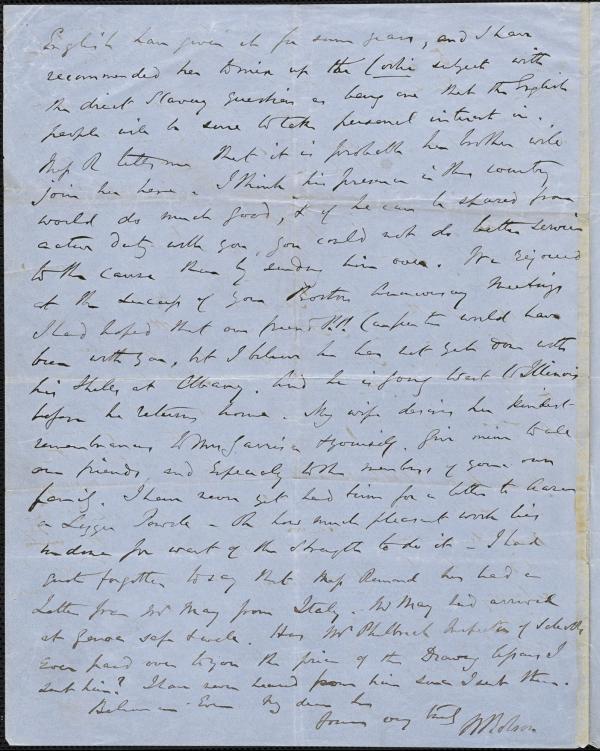 English have given it for some years, and I have
recommended her to mix up the Coolie subject with
the direct Slavery question as being one that the English
people will be sure to take personal interest in.
Miss R tells me that it is probable her brother will
join her here. I think his presence in this country
would do much good, & if he can be spared from
active duty with you, you could not do better service
to the cause than by sending him over. We rejoiced
at the success of your Boston Anniversary Meetings
I had hoped that our friend P.P. Carpenter would have
been with you, but I believe he has not yet done with
his Shells at Albany. And he is going West to Illinois
before he returns home. My wife desires her kindest
remembrances to Mrs Garrison & yourself. Give mine to all
our friends and Especially to the members of your own
family. I have never yet had time for a letter to Aaron
or Lizzie Powell - Oh how much pleasant work lies
undone for want of the Strength to do it - I had
quite forgotten to say that Miss Remond has had a
Letter from Mr May from Italy. Mr May had arrived
at Genoa safe & well. Has Mr Philbrick Inspector of Schools
Ever paid over to you the price of the Drawing Copies I
sent him? I have never heard from him since I sent them.
Believe me Ever My dear
Yours very truly W Robson